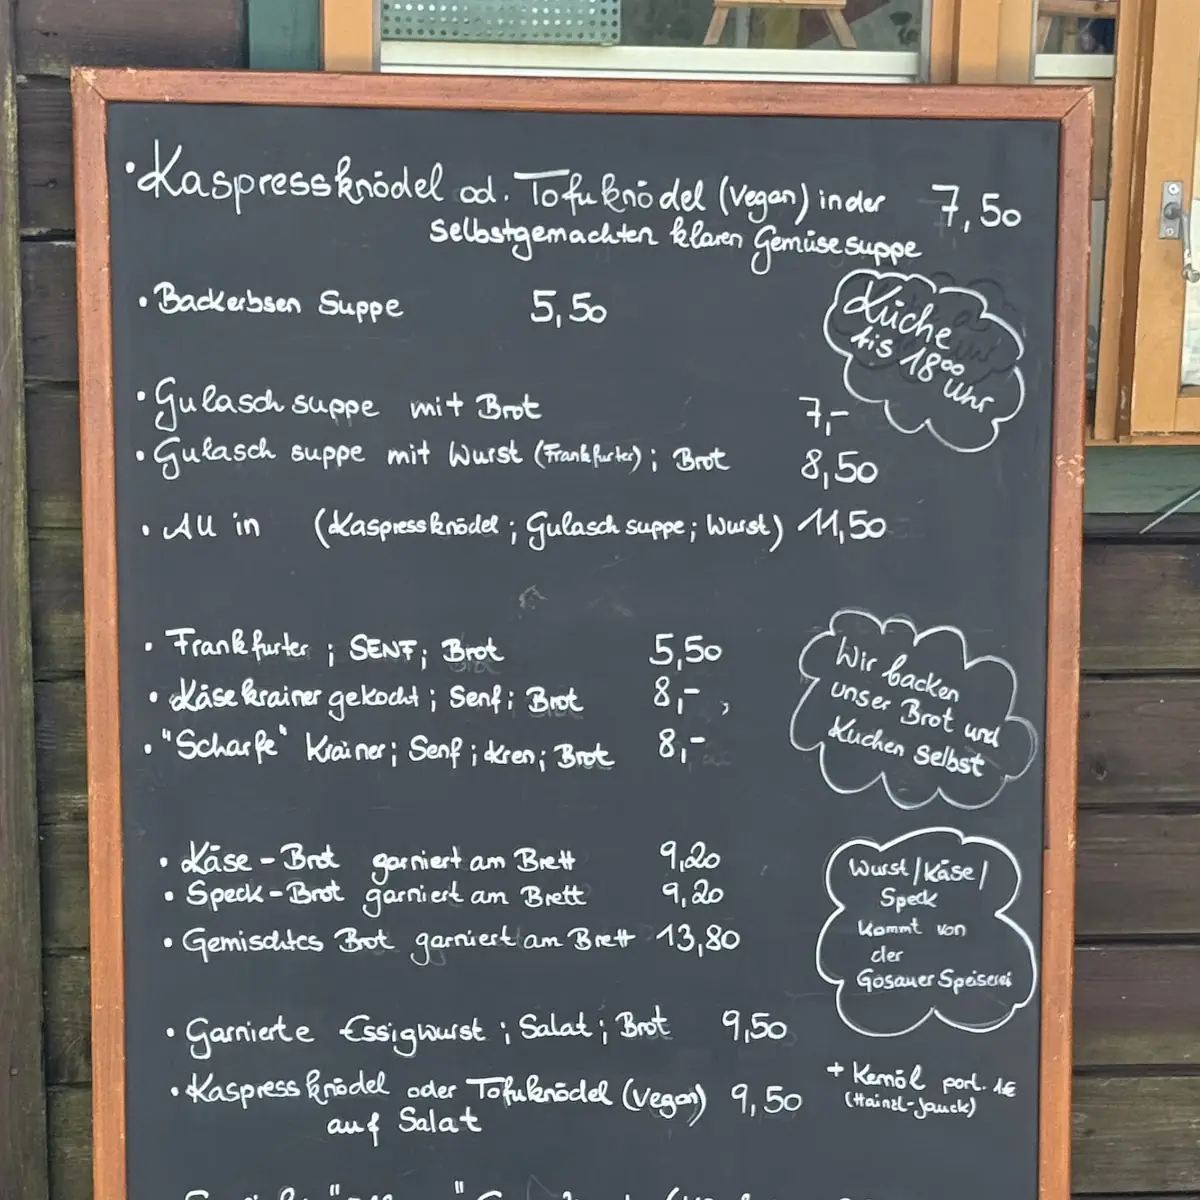 • Kaspressknödel od. Tofuknödel (vegan) in der 7,50
selbstgemachten klaren Gemüsesuppe
• Backerbsen Suppe 5,50
Küche
bis 18⁰⁰
Uhr
• Gulaschsuppe mit Brot 7,-
• Gulaschsuppe mit Wurst (Frankfurter); Brot 8,50
• All in (Kaspressknödel; Gulaschsuppe; Wurst) 11,50
• Frankfurter; SENF; Brot 5,50
• Käsekrainer gekocht; Senf; Brot 8,-
• "Scharfe" Krainer; Senf; Kren; Brot 8,-
Wir backen
unser Brot und
Kuchen selbst
• Käse-Brot garniert am Brett 9,20
• Speck-Brot garniert am Brett 9,20
• Gemischtes Brot garniert am Brett 13,80
Wurst/Käse/
Speck
kommt von
der
Gosauer Speiserei
• Garnierte Essigwurst; Salat; Brot 9,50
• Kaspressknödel oder Tofuknödel (vegan) 9,50
auf Salat
+ Kernöl port. 1€
(Hainzl-Jauck)